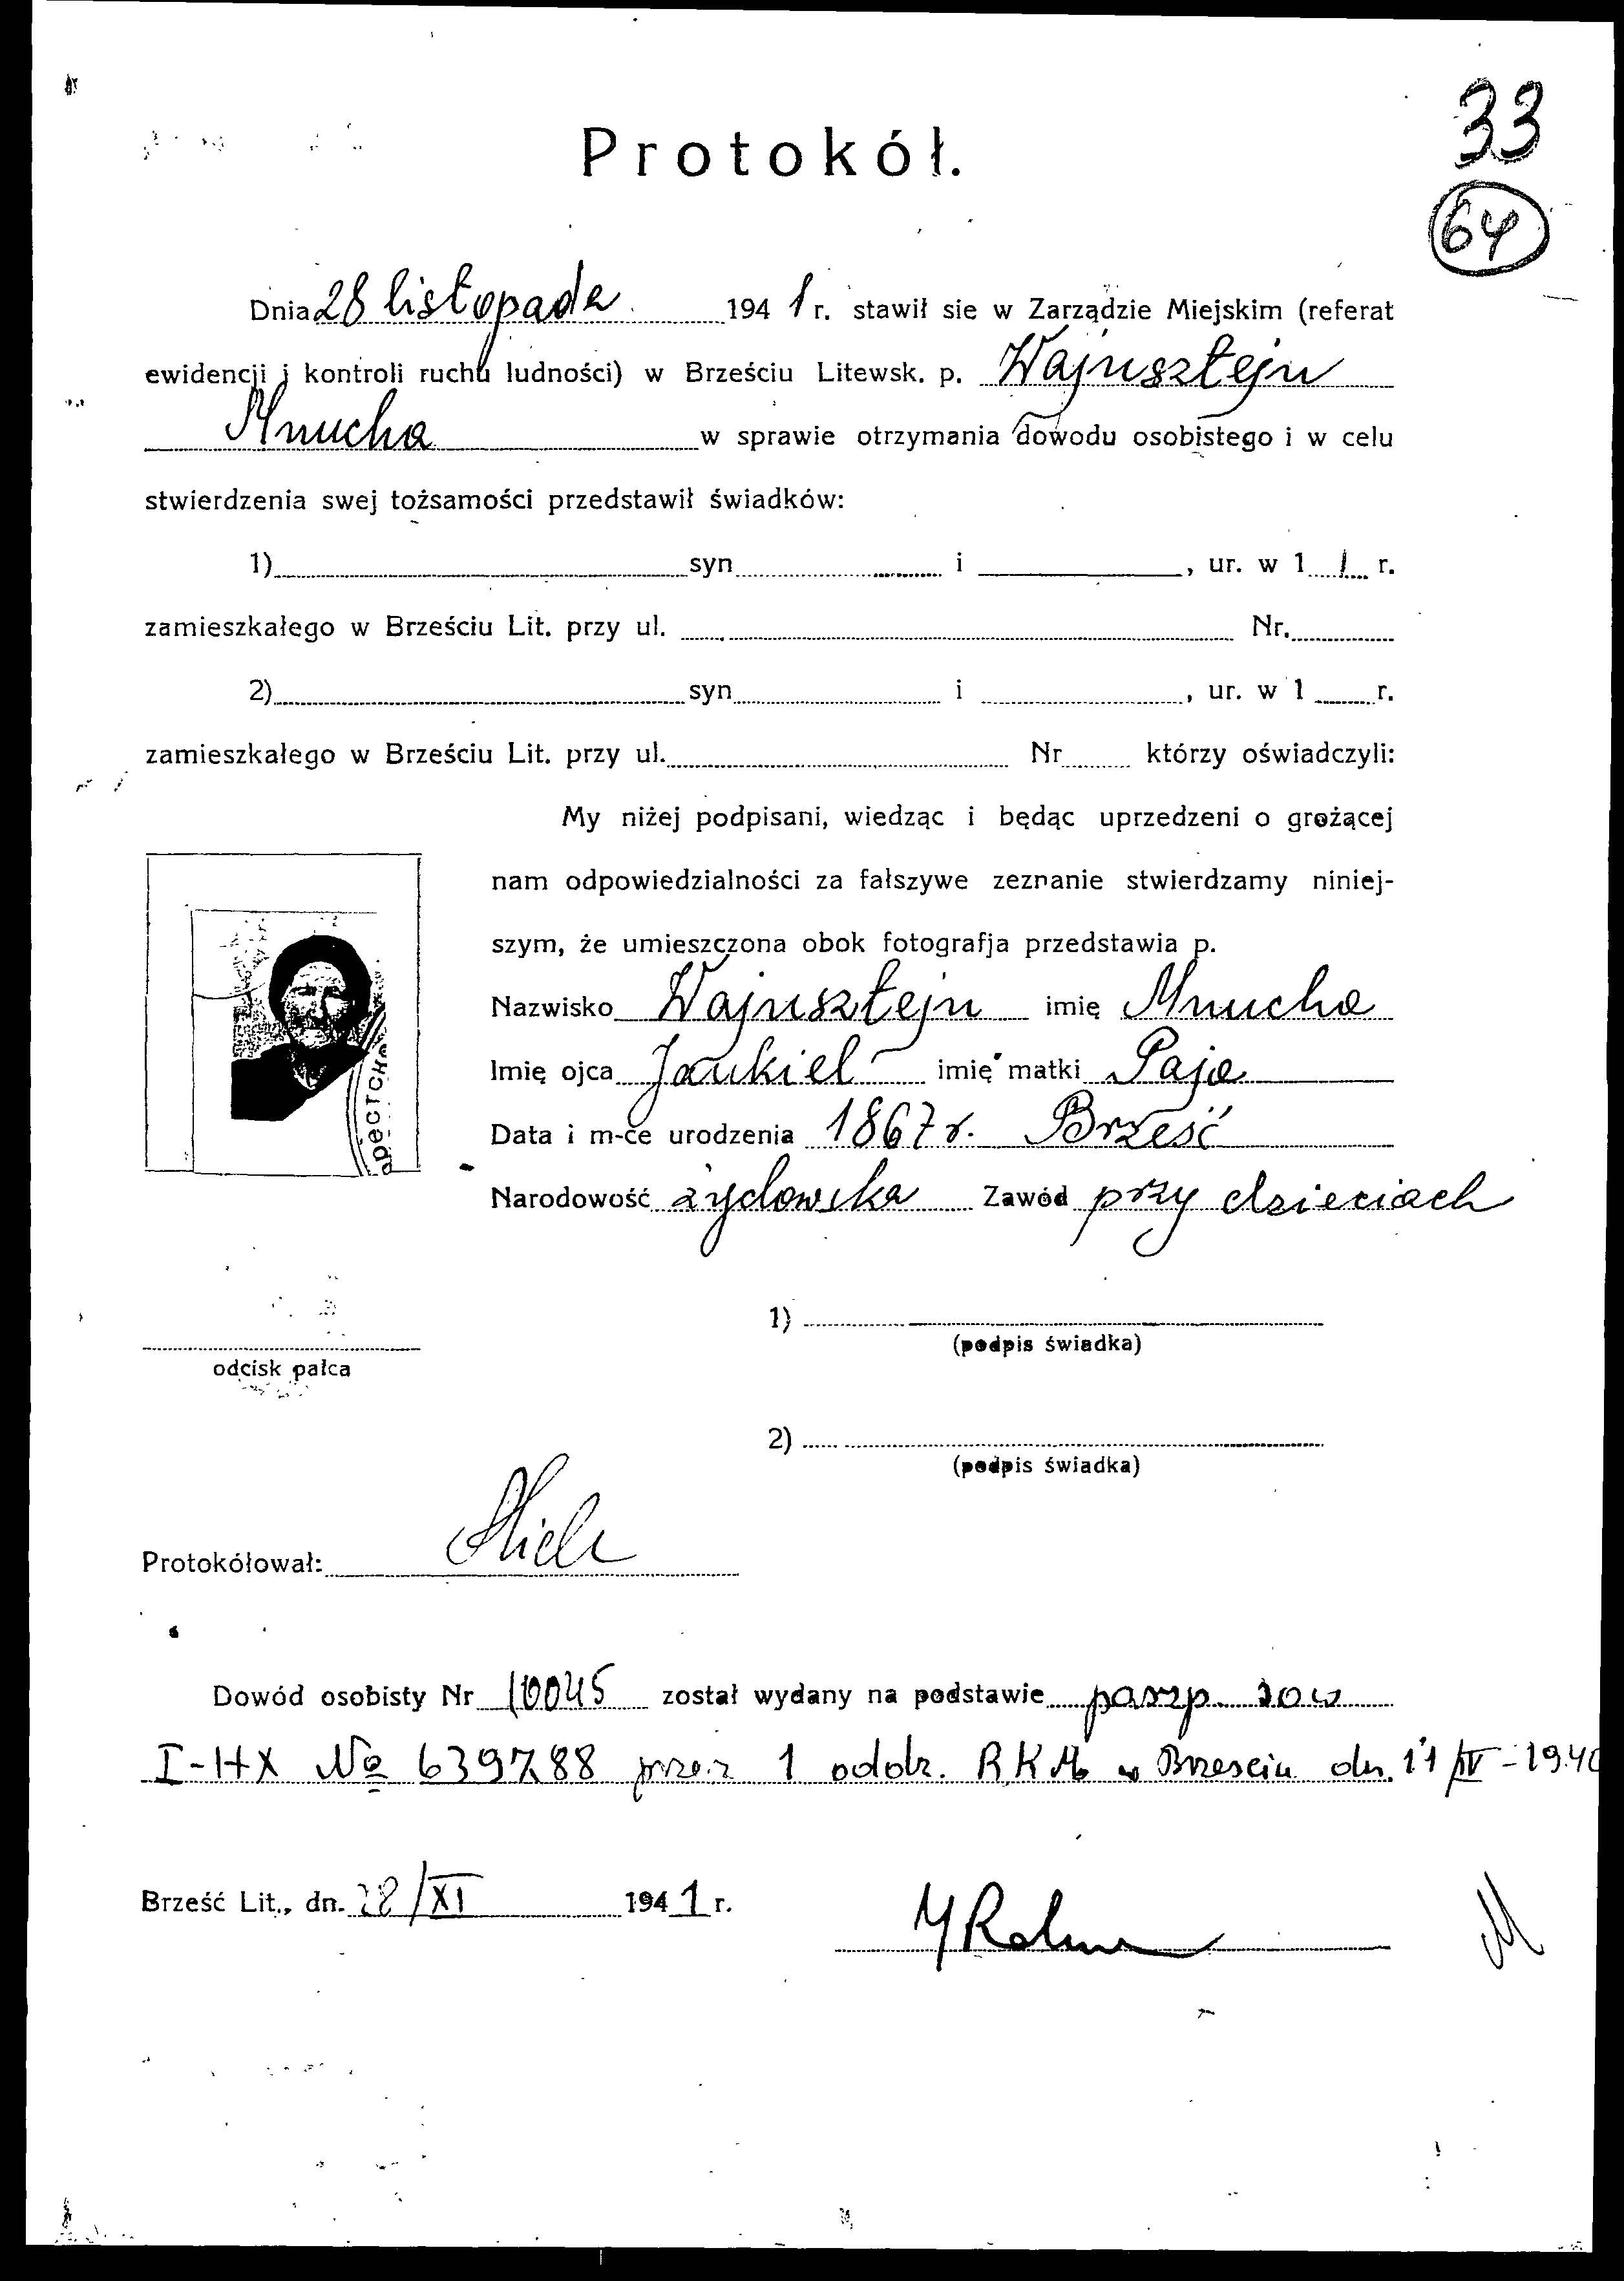 33
64
Protokół.
Dnia 28 listopada 1941 r. stawił sie w Zarządzie Miejskim (referat
ewidencji i kontroli ruchu ludności) w Brześciu Litewsk. p. Wajnsztejn
Mnucha w sprawie otrzymania dowodu osobistego i w celu
stwierdzenia swej tożsamości przedstawił świadków:
1) syn i , ur. w 1 r.
zamieszkałego w Brześciu Lit. przy ul. Nr.
2) syn i , ur. w 1 r.
zamieszkałego w Brześciu Lit. przy ul. Nr którzy oświadczyli:
My niżej podpisani, wiedząc i będąc uprzedzeni o grożącej
nam odpowiedzialności za fałszywe zeznanie stwierdzamy niniej-
szym, że umieszczona obok fotografja przedstawia p.
Nazwisko Wajnsztejn imię Mnucha
Imię ojca Jankiel imię matki Paja
Data i m-ce urodzenia 1867 r. Brześć
Narodowość żydowska Zawód przy dzieciach
1)
(podpis świadka)
odcisk palca
2)
(podpis świadka)
Protokółował:
Dowód osobisty Nr 10045 został wydany na podstawie paszp. sow
I-HX № 639788 przez 1 oddz. RKM w Brzesciu dn. 11/IV-1940
Brześć Lit., dn. 28/XI 1941 r.